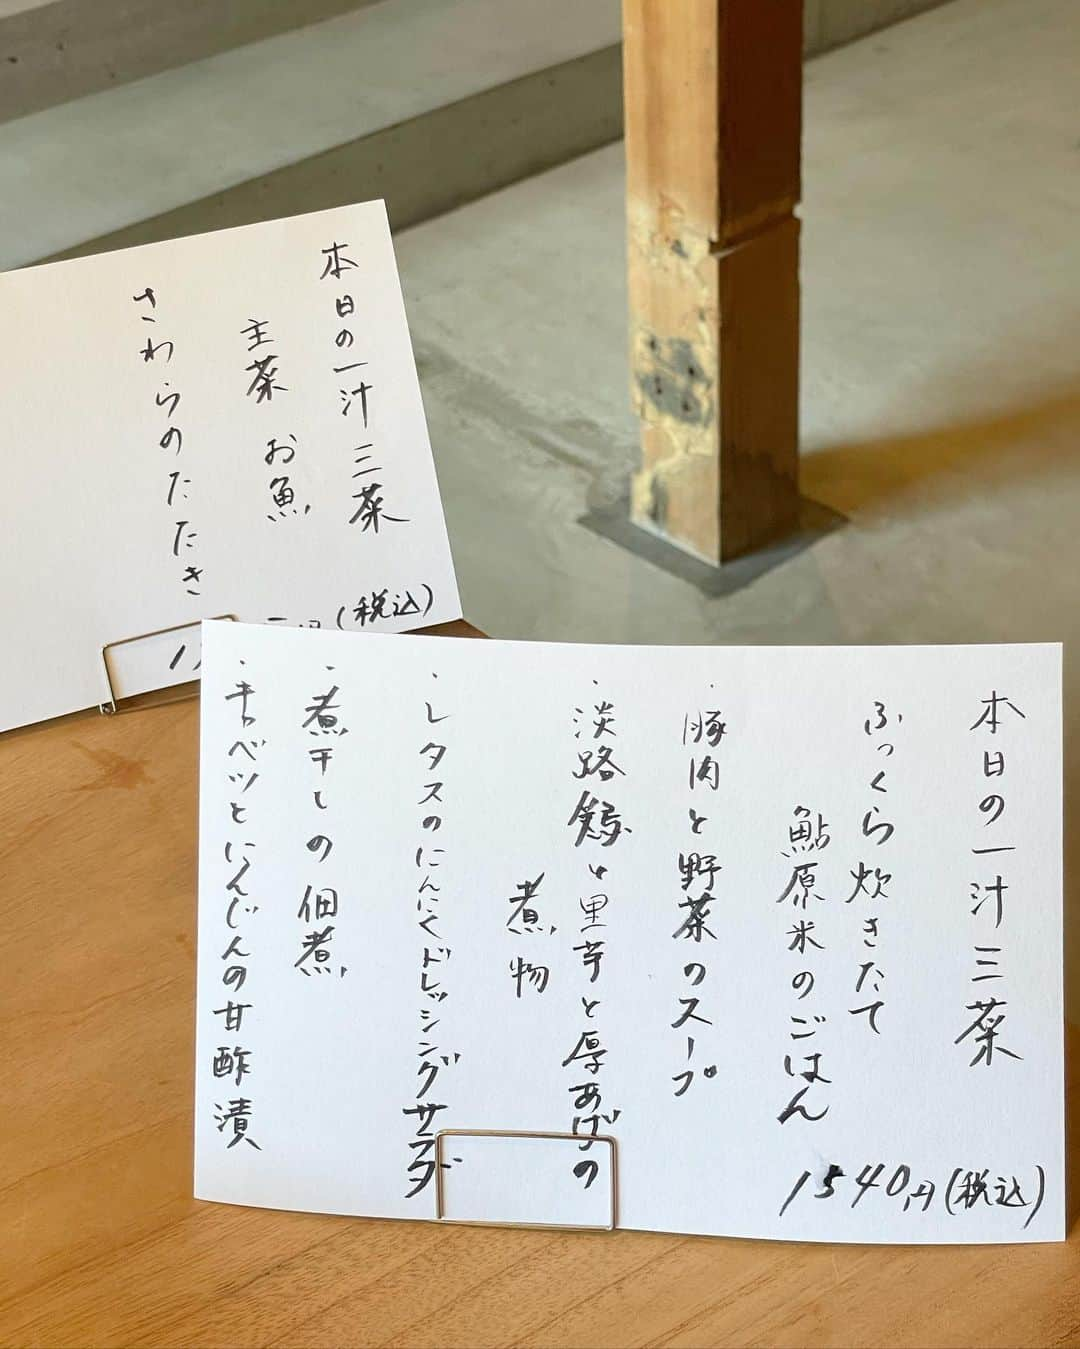 本日の一汁三菜
主菜 お魚
さわらのたたき
(税込)
本日の一汁三菜
ふっくら炊きたて
鮎原米のごはん
1540円(税込)
・豚肉と野菜のスープ
・淡路鶏と里芋と厚あげの
煮物
・レタスのにんにくドレッシングサラダ
・煮干しの佃煮
・キャベツとにんじんの甘酢漬